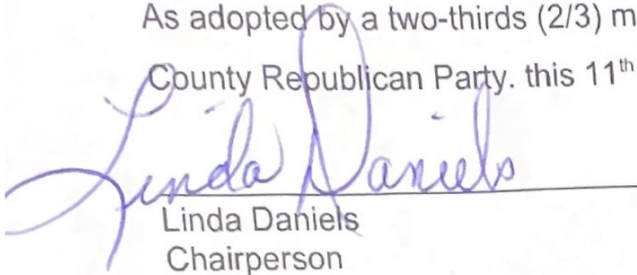 As adopted by a two-thirds (2/3) m
County Republican Party. this 11th
Linda Daniels
Linda Daniels
Chairperson